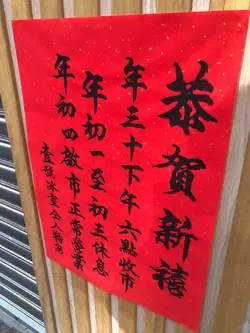 恭賀新禧
年三十下午六點收市
年初一至初三休息
年初四啟市正常營業
壹號冰室仝人鞠躬